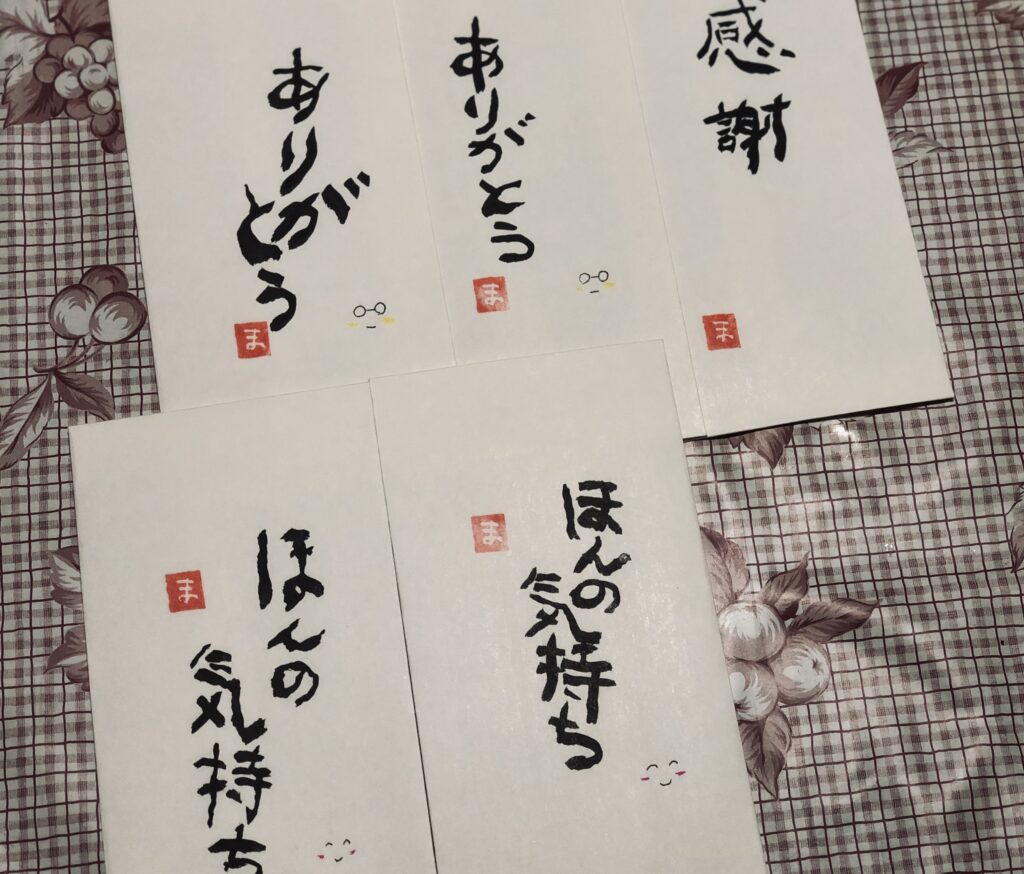 ありがとう
ま
ありがとう
ま
感謝
ま
ほんの
気持ち
ま
ほんの
気持ち
ま